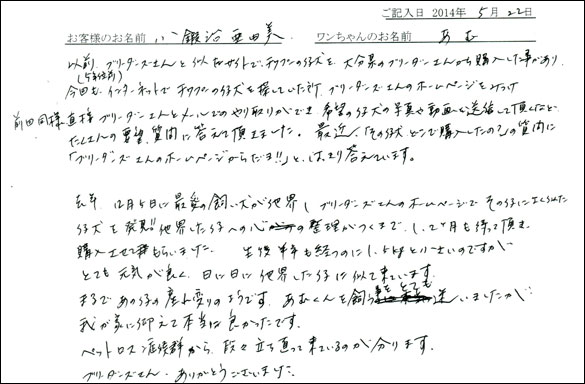 ご記入日 2014年 5月 22日
お客様のお名前 小鍛治亜由美 ワンちゃんのお名前 あむ
以前、ブリーダーズさんと似たサイトで、チワワの仔犬を大分県のブリーダーさんから購入した事があり、
(5年位前)
今回も、インターネットでチワワの仔犬を探していた所、ブリーダーズさんのホームページをみつけ
前回同様 直接ブリーダーさんとメールでのやり取りができ 希望の仔犬の写真や動画も送信して頂くなど、
たくさんの要望、質問に答えて頂きました。最近、「その犬、どこで購入したの?」の質問に
「ブリーダーズさんのホームページからだョ!!」と、はっきり答えています。
去年、12月5日に最愛の飼い犬が他界し ブリーダーズさんのホームページでその子によく似た
仔犬を発見!! 他界した子への心の整理がつくまで、1、2ヶ月も待って頂き、
購入させてもらいました。 生後半年も経つのに1.5kgと小さいのですが
とても元気が良く、日に日に他界した子に似て来ています。
まるであの子の産れ変りのようです。あむくんを飼う事をとても迷いましたが、
我が家に迎えて本当に良かったです。
ペットロス症候群から、段々立ち直って来ているのが分ります。
ブリーダーズさん、ありがとうございました。